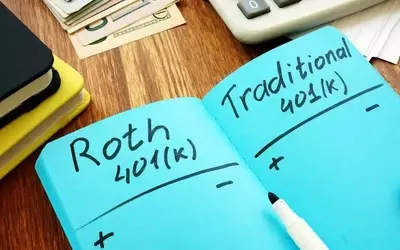 Roth
401(K)
+ -
Traditional
401(K)
+ -